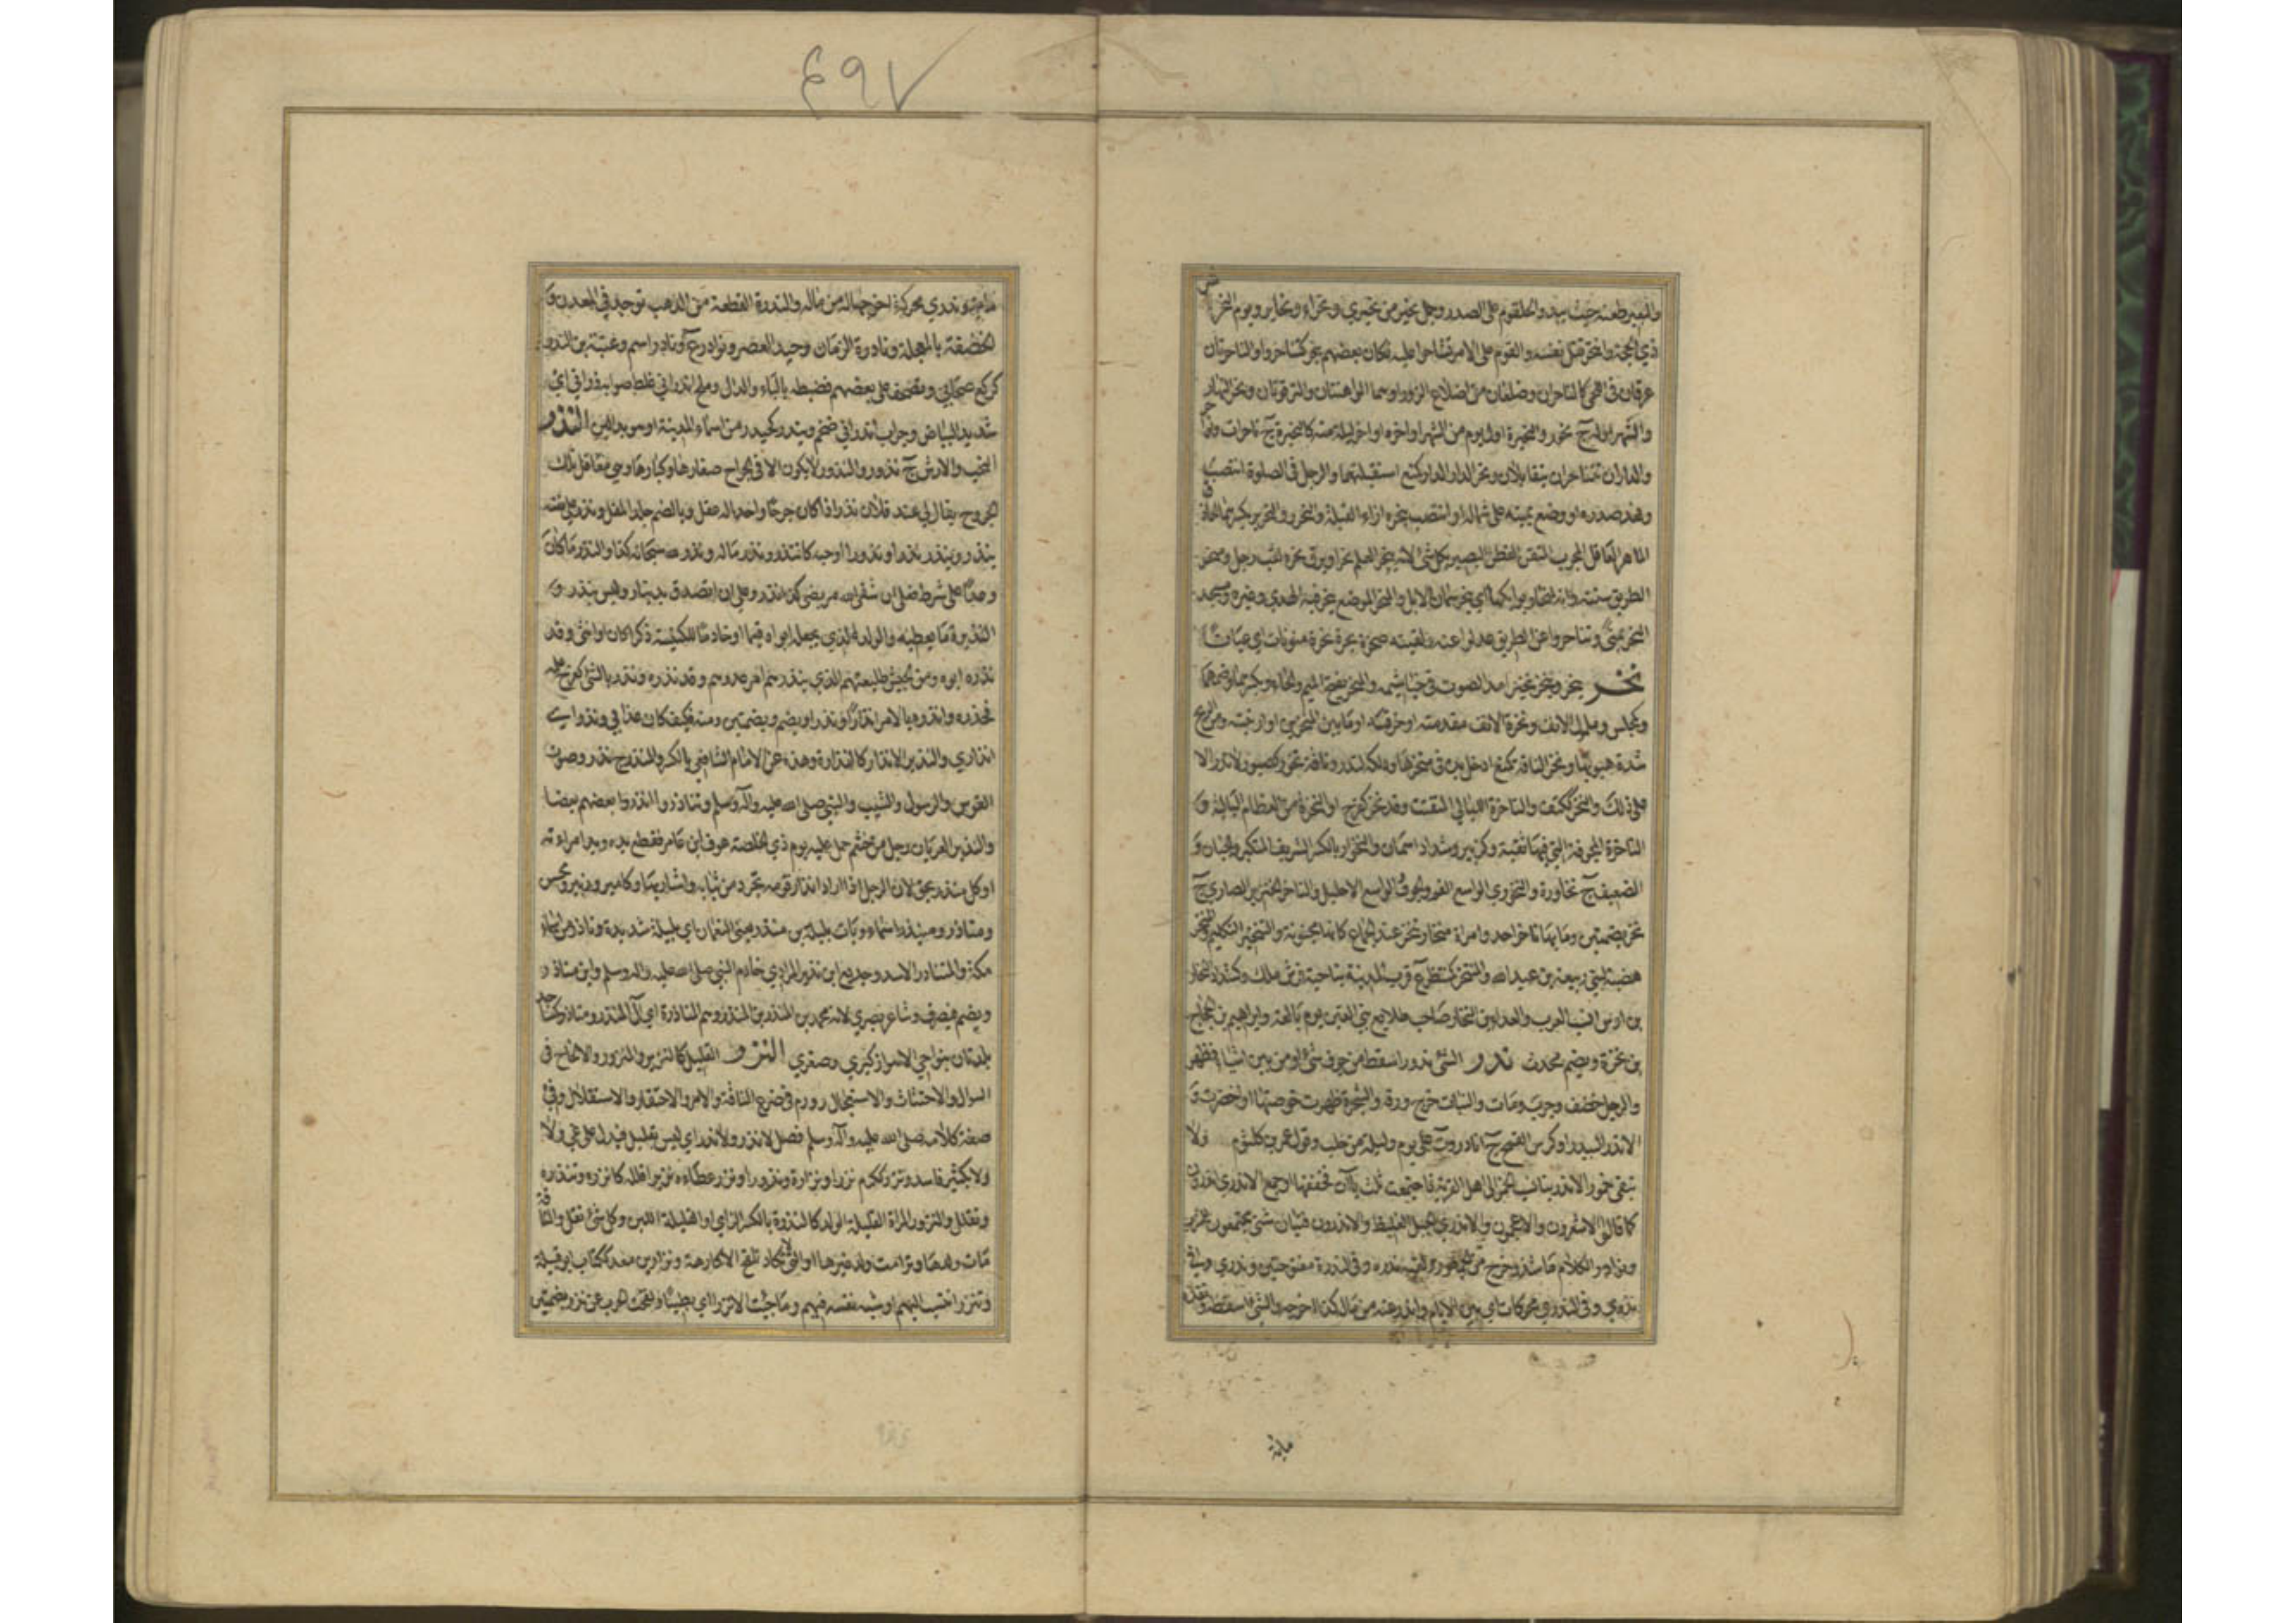 والبعير طعنه حيث يبدو الحلقوم على الصدر وجمل نحير من نحرى ونحراء ونحاير ويوم النحر
ذي الحجة وانتحر قتل نفسه والقوم على الامر تشاحوا عليه فكاد بعضهم ينحر كتناحروا والناحرتان
عرقان في اللحي كالناحران وضلعان من اضلاع الزور او هما الواهنتان والترقوتان ونحر النهار
والشهر اوله ج نحور والنحيرة اول يوم من الشهر او اخره او اخر ليلة منه كالنحيرة ج ناحرات
والداران تتناحران تتقابلان ونحر الدار الدار كمنع استقبلتها والرجل في الصلوة انتصب
ونهد صدره او وضع يمينه على شماله او انتصب بنحره ازاء القبلة والنحر والنحرير بكسرهما الحاذق
الماهر العاقل المجرب المتقن الفطن البصير بكل شئ لانه ينحر العلم نحرا وبرق نحره لقب رجل ومنحر
الطريق سننه وانه لمنحار بوائكها اي ينحر سمان الابل والمنحر الموضع ينحر فيه الهدي وغيره ومسجد
النحر بمنى وتناحروا عن الطريق عدلوا عنه ولقيته صحرة بحرة نحرة منونات اي عيانا
نخر ينخر وينخر نخيرا مد الصوت في خياشيمه والمنخر بفتح الميم والخاء وبكسرهما وضمهما
وكمجلس وملمول الانف ونخرة الانف مقدمته او خرقته او ما بين المنخرين او ارنبته ومن الريح
شدة هبوبها ونخر الناقة كمنع ادخل يده في منخرها ودلكه لتدر وناقة نخور كصبور لا تدر الا
على ذلك والنخر ككتف والناخرة البالي المتفتت وقد نخر كفرح او النخرة من العظام البالية و
الناخرة المجوفة التي فيها ثقبة وكزبير وشداد اسمان والنخوار بالكسر الشريف المتكبر والجبان و
الضعيف ج نخاورة والنخوري الواسع الفم والجوف الواسع الاحليل والناخر الخنزير الضاري ج
نخر بضمتين وما بها ناخر احد وامراة منخار تنخر عند الجماع كانها مجنونة والتنخير التكليم والمنخر
هضبة لبني ربيعة بن عبد الله والمنتخر كمنتظر ع قرب المدينة بناحية فرش ملك وكشداد النخار
بن اوس انسب العرب والعداء بن النخار صاحب طلايع بني القين يوم بالغة وابراهيم بن الحجاج
بن نخرة ويضم محدث ندر الشئ ندورا سقط من جوف شئ او من بين اشياء فظهر
والرجل خضف وجرب ومات والنبات خرج ورقه والشجرة ظهرت خوصتها او اخضرت و
الاندر البيدر او كدس القمح ج انادر وة على يوم وليلة من حلب وقول عمرو بن كلثوم ولا
تبقى خمور الاندرينا نسب الخمر الى اهل القرية فاجتمعت ثلث ياآت فخففها او جمع الاندري اندرون
كما قالوا الاشعرون والاعجمون والاندري الحبل الغليظ والاندرون فتيان شتى يجتمعون للشرب
ونوادر الكلام ما شذ وخرج من الجمهور ولقيته ندرة وفي الندرة مفتوحتين وندرى وفي
ندرى وفي الندرى محركات اي بين الايام واندر عنه من ماله كذا اخرجه والشئ اسقطه ونقده
مائة
٤٩٧
ماية ندرى محركة اخرجها له من ماله والندرة القطعة من الذهب توجد في المعدن و
الخضفة بالعجلة ونادرة الزمان وحيد العصر ونوادر ع ونادر اسم وعتبة بن الندر
كركع صحابي وتصحف على بعضهم فضبطه بالباء والذال وملح اندراني غلط صوابه ذرآني اي
شديد البياض وجراب اندراني ضخم ويندر كحيدر من اسماء المدينة او هو بدالين النذر
النحب والارش ج نذور والنذور لا يكون الا في الجراح صغارها وكبارها وهي معاقل تلك
الجروح يقال لي عند فلان نذر اذا كان جرحا واحدا له عقل وبالضم جلد المقل ونذر على نفسه
ينذر وينذر نذرا ونذورا اوجبه كانتذر ونذر ماله ونذر لله سبحانه كذا او النذر ما كان
وعدا على شرط فعلي ان شفى الله مريضي كذا نذر وعلي ان اتصدق بدينار ليس بنذر و
النذيرة ما يعطيه والولد الذي يجعله ابواه قيما او خادما للكنيسة ذكرا كان او انثى وقد
نذره ابوه ومن الجيش طليعتهم الذي ينذرهم امر عدوهم وقد نذره ونذر بالشئ كفرح علمه
فحذره وانذره بالامر انذارا ونذرا ويضم وبضمتين ومنه فكيف كان عذابي ونذر اي
انذاري والنذير الانذار كالنذارة وهذه عن الامام الشافعي بالكسر والمنذر ج نذر وصوت
القوس والرسول والشيب والنبي صلى الله عليه وآله وسلم وتناذروا انذروا بعضهم بعضا
والنذير العريان رجل من خثعم حمل عليه يوم ذي الخلصة عوف ابن عامر فقطع يده ويد امراءته
او كل منذر بحق لان الرجل اذا اراد انذار قومه تجرد من ثيابه واشار بها وكامير وزبير ومحسن
ومناذر ومنيذر اسماء وبات بليلة بن منذر يعني النعمان اي بليلة شديدة وناذر من اسماء
مكة والمتناذر الاسد وجديع ابن نذير المرادي خادم النبي صلى الله عليه واله وسلم وابن مناذر
ويضم فيصرف شاعر بصري لانه محمد بن المنذر بن المنذر وهم المناذرة اي آل المنذر ومناذر كمساجد
بلدتان بنواحي الاهواز كبرى وصغرى النزر القليل كالنزير والمنزور والالحاح في
السوال والاحتثاث والاستعجال وورم في ضرع الناقة والامر والاحتقار والاستقلال وفي
صفة كلامه صلى الله عليه وآله وسلم فصل لا نزر ولا هذر اي ليس بقليل فيدل على عي ولا
ولا بكثير فاسد ونزر ككرم نزرا ونزارة ونزورا ونزر عطاءه تنزيرا قلله كانزره وتنزره
وتقلل والنزور المراة القليلة الولد كالنزرة بالكسر الزاي او القليلة اللبن وكل شئ تقل والناقة
مات ولدها وترامت ولد غيرها او التي لا تكاد تلقح الا كارهة ونزار بن معد ككتاب ابو قبيلة
وتنزر انتسب اليهم او شبه نفسه فيهم وما جئت الا نزرا اي بطيئا ولقحت الحرب عن نزر بضمتين